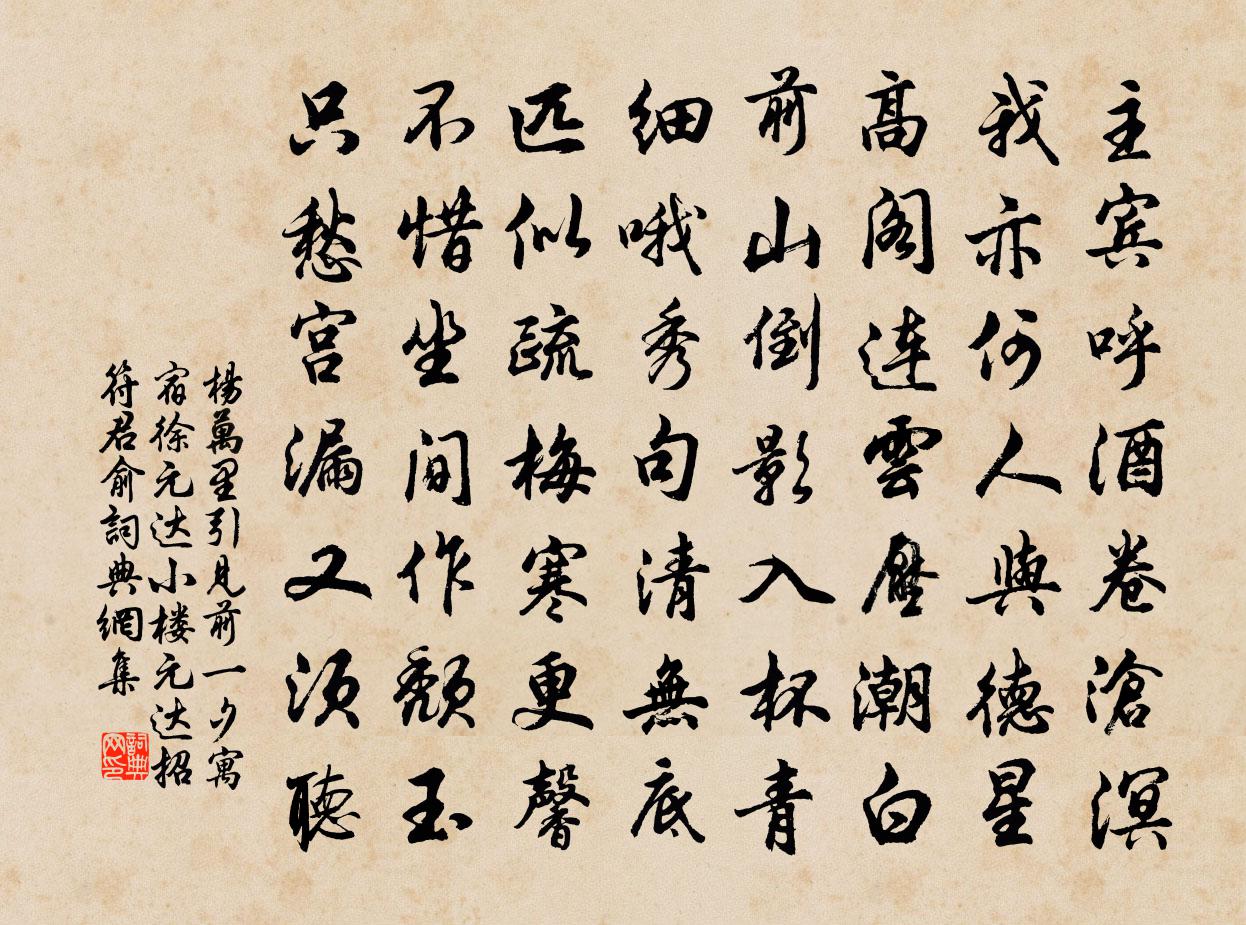 主宾呼酒卷沧溟
我亦何人與德星
高阁连雲壓潮白
前山倒影入杯青
细哦秀句清無底
匹似疏梅寒更馨
不惜坐间作颓玉
只愁宫漏又须聽
楊萬里引見前一夕寓
宿徐元达小楼元达招
符君俞詞典網集
詞典网印